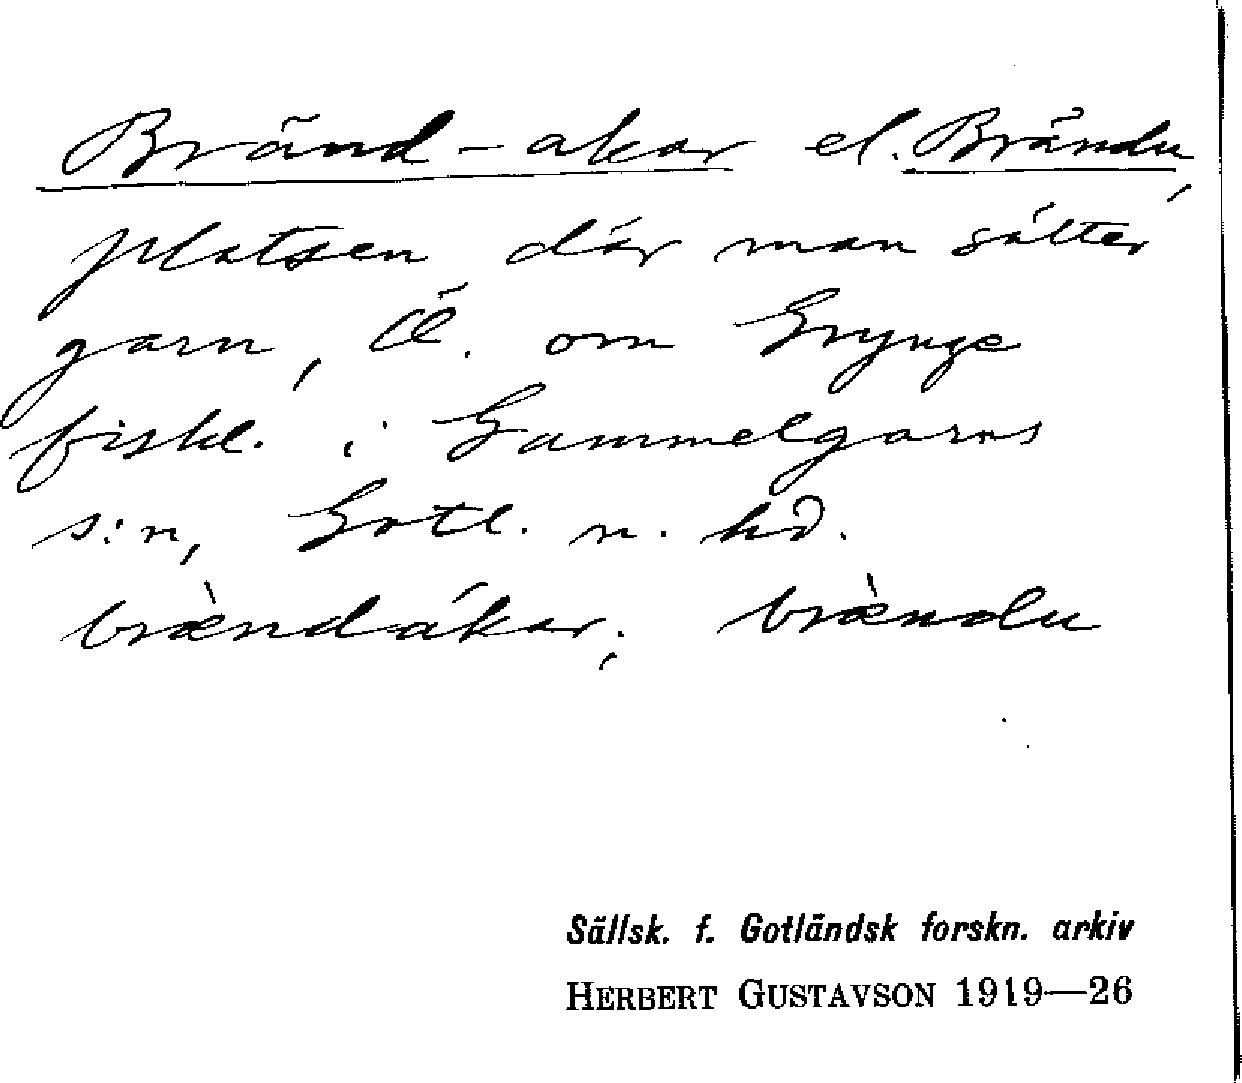 Bränd-akar el. Brändu,
platsen där man sätter
garn, Ö. om Grynge
fiskl. i Gammelgarns
s:n, Gotl. n. hd.
brǽndákar; brǽndu
Sällsk. f. Gotländsk forskn. arkiv
HERBERT GUSTAVSON 1919—26